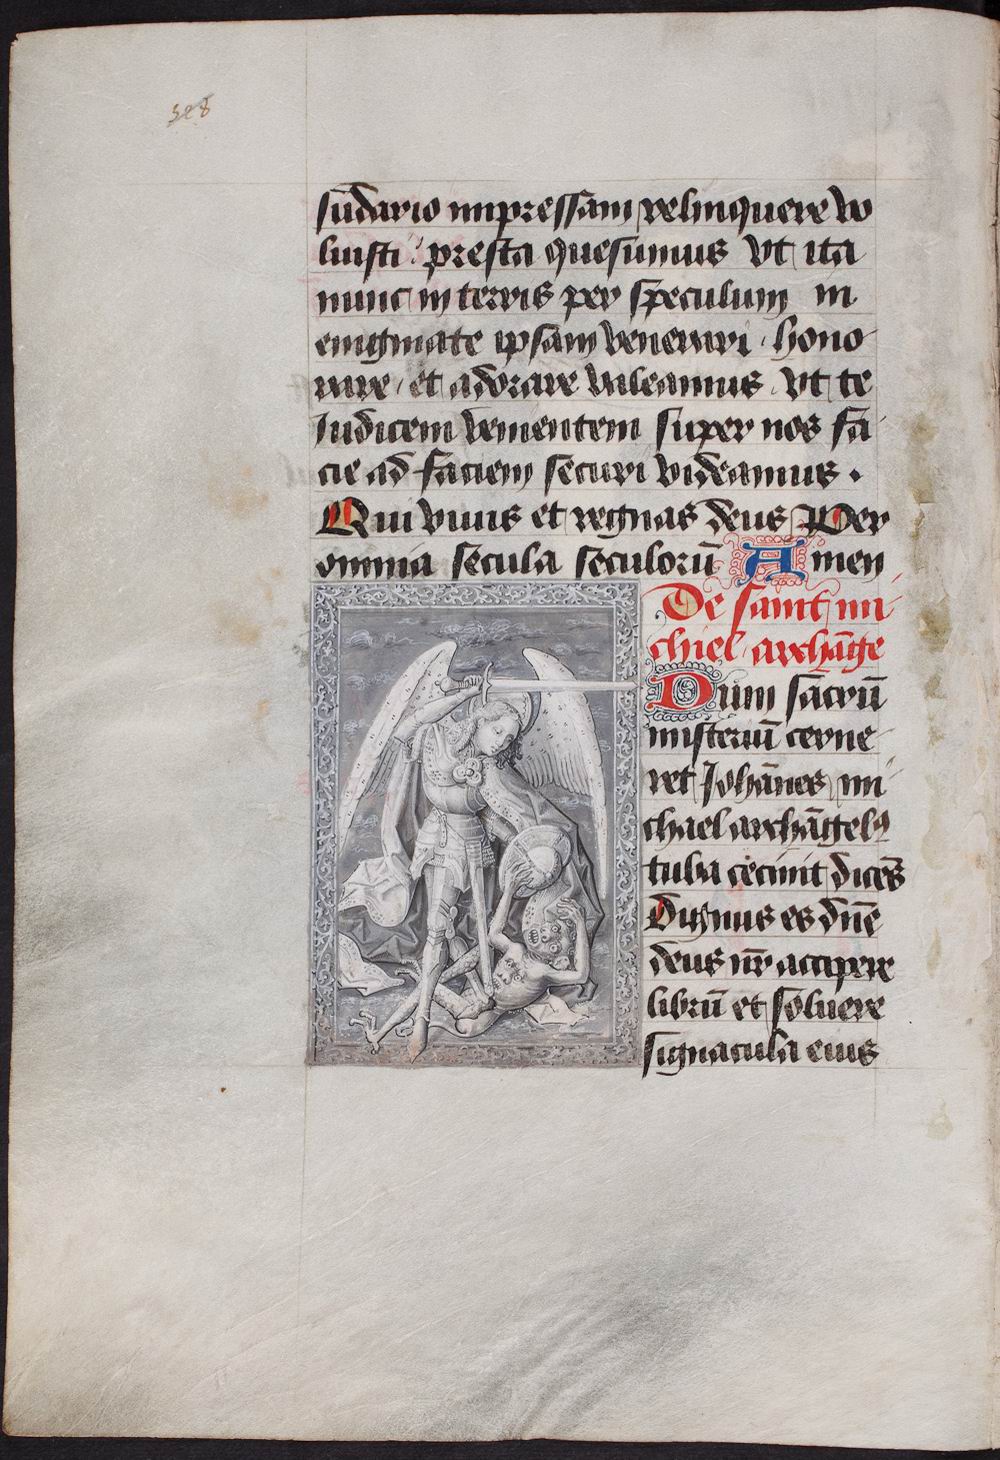 328
sūdario impressam relinquere vo
luisti . presta quesumus vt ita
nunc in terris per speculum in
enigmate ipsam venerari . hono
rare . et adorare valeamus . vt te
Judicem venientem super nos fa
cie ad faciem securi videamus .
Qui viuis et regnas deus Per
omnia secula seculorū Amen
De saint mi
chiel archāge
Dum sacrū
misteriū cerne
ret Johānes mi
chael archāgelꝯ
tuba cecinit dicēs
Dignus es dn̄e
deus nr̄ accipere
librū et soluere
signacula eius